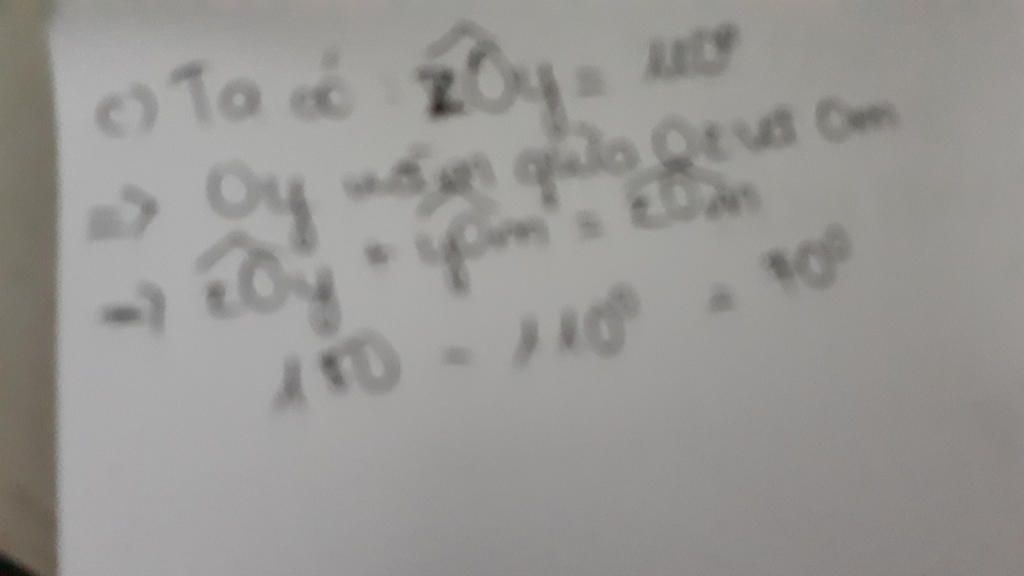 c) Ta có zOy = 110°
=> Oy nằm giữa Oz và Om
=> zOy + yOm = zOm
180 - 110° = 70°